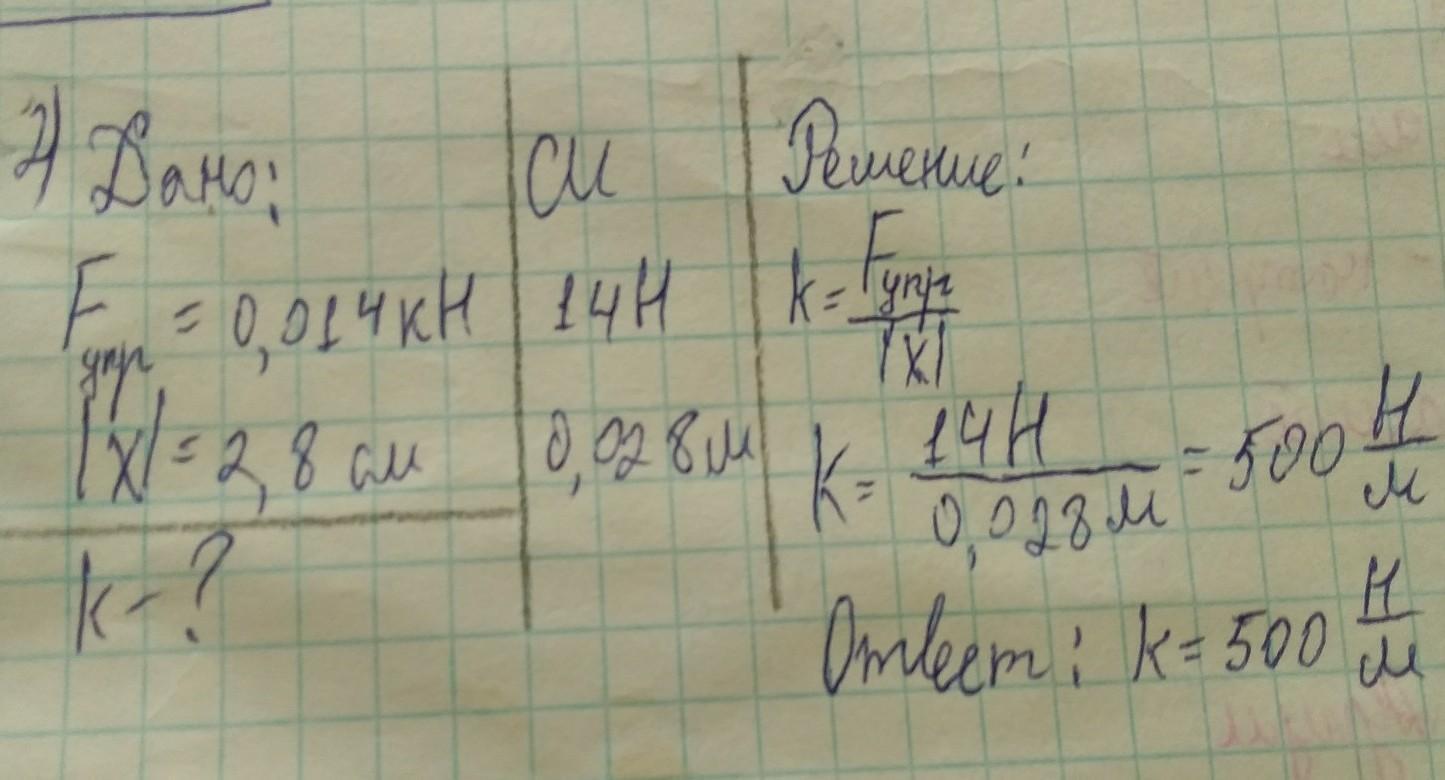 2) Дано:
F упр = 0,014 кН
|x| = 2,8 см
k - ?
СИ
14 Н
0,028 м
Решение:
k = Fупр / |x|
k = 14 Н / 0,028 м = 500 Н/м
Ответ: k = 500 Н/м